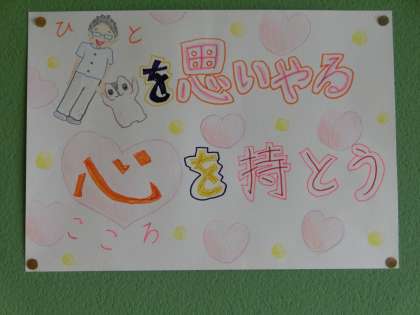 ひと
を思いやる
心を持とう
こころ